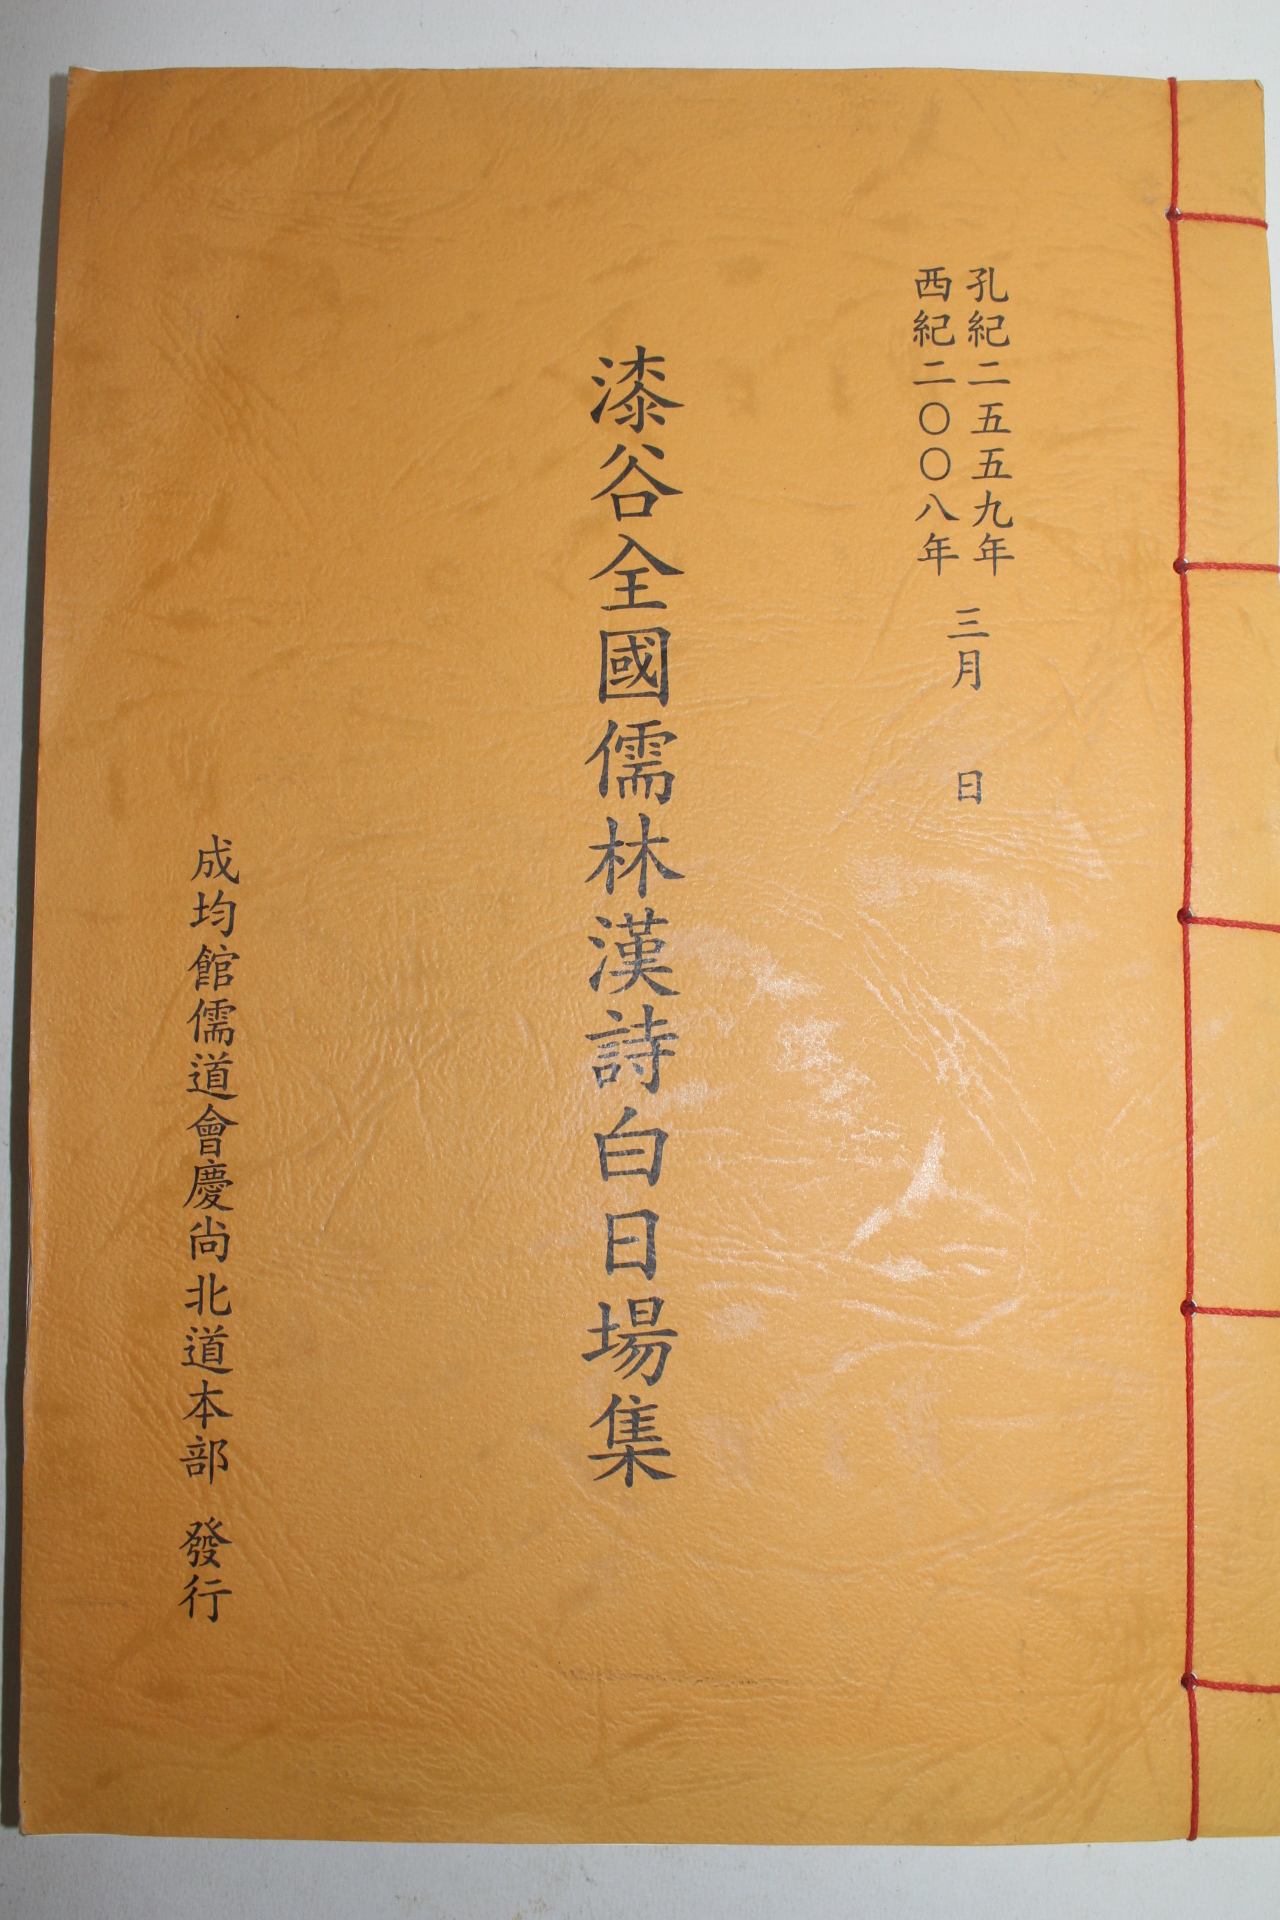 孔紀二五五九年
西紀二〇〇八年
三月 日
漆谷全國儒林漢詩白日場集
成均館儒道會慶尙北道本部 發行